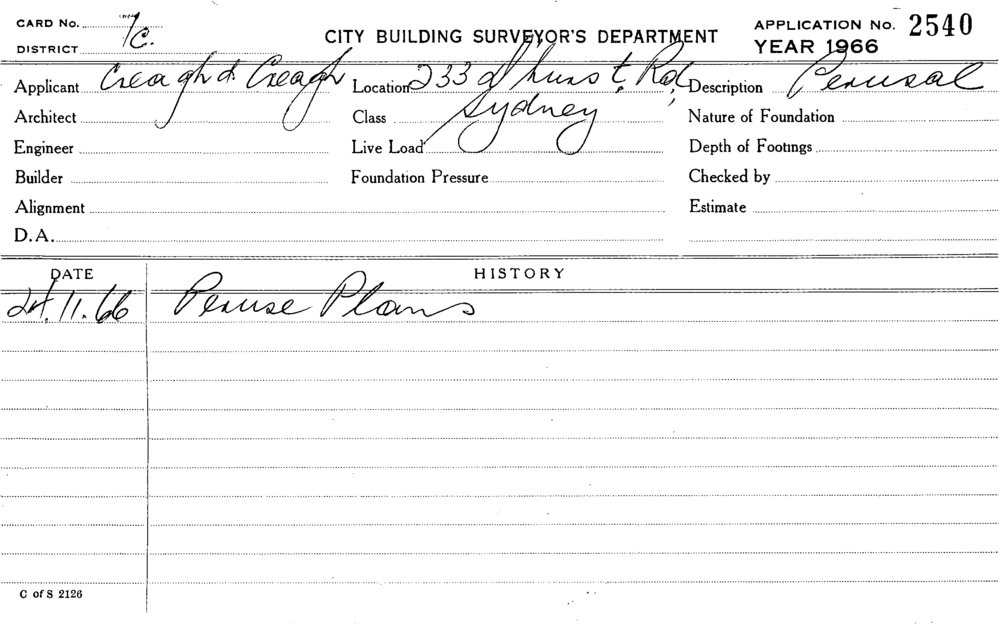 CARD No.
7/C.
DISTRICT
CITY BUILDING SURVEYOR'S DEPARTMENT
APPLICATION No. 2540
YEAR 1966
Applicant Creagh & Creagh
Location 233 d'hurst Rd,
Sydney
Description Perusal
Architect
Class
Nature of Foundation
Engineer
Live Load
Depth of Footings
Builder
Foundation Pressure
Checked by
Alignment
Estimate
D.A.
DATE
HISTORY
24.11.66 Peruse Plans
C of S 2126